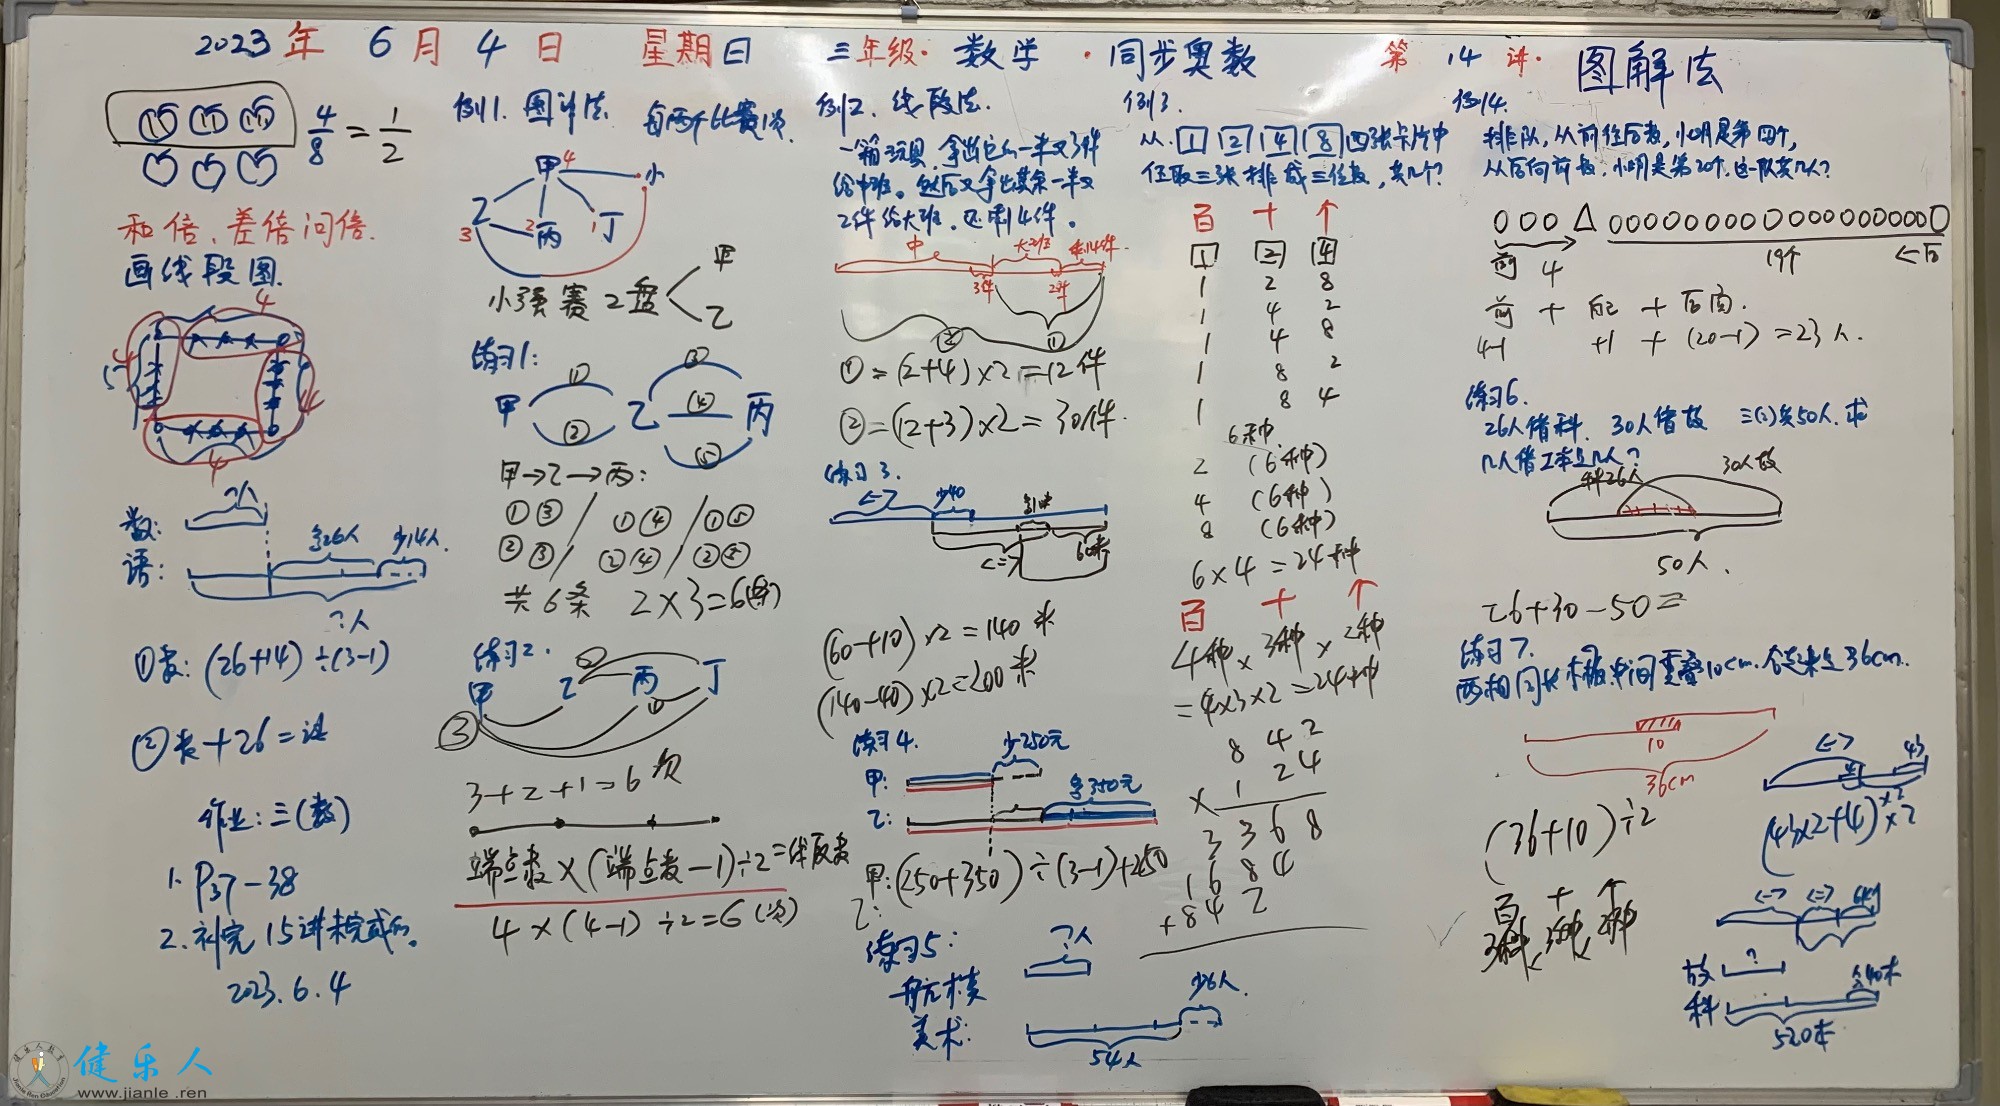 2023年 6月 4日 星期日 三年级·数学·同步奥数 第14讲·图解法
4/8 = 1/2
和倍、差倍问倍.
画线段图.
4
5
4
4
4
数:
?人
语:
多26人
少14人.
?人
①数: (26+14)÷(3-1)
②数+26=语
作业: 三(数)
1. P37-38
2. 补完15讲未完成的。
2023.6.4
例1. 图计法. 每两个比赛1次.
甲 4
小
乙 3
2 丙
1 丁
小强赛2盘
甲
乙
练习1:
甲 ① ② 乙 ③ ④ ⑤ 丙
甲→乙→丙:
①③/ ①④/ ①⑤
②③/ ②④/ ②⑤
共6条 2×3=6(条)
练习2.
甲 乙 丙 丁
③ ② ①
3+2+1=6次
端点数×(端点数-1)÷2=线段数
4×(4-1)÷2=6(次)
例2. 线段法.
一箱玩具,拿出它的一半又3件
给中班。然后又拿出其余一半又
2件给大班,还剩4件。
中 大班 剩4件.
3件 2件
② ①
①=(2+4)×2=12件
②=(12+3)×2=30件.
练习3.
少40
多10米
60米
(60+10)×2=140米
(140-40)×2=200米
练习4.
少250元
甲:
多350元
乙:
甲:(250+350)÷(3-1)+250
乙:
练习5:
?人
航模
美术:
少6人.
54人
例3.
从 1 2 4 8 四张卡片中
任取三张排成三位数,共几个?
百 十 个
1 2 4
1 2 8
1 4 2
1 4 8
1 8 2
1 8 4
6种
2 (6种)
4 (6种)
8 (6种)
6×4=24种
百 十 个
4种×3种×2种
=4×3×2=24种
8 4 2
× 1 2 4
3 3 6 8
1 6 8 4
+8 4 2
例4.
排队,从前往后数,小明是第四个,
从后向前数,小明是第20个,这一队共几人?
前 4
19个
←后
前 + 自己 + 后面.
4-1 +1 + (20-1) =23人.
练习6.
26人借科. 30人借故 三(1)共50人.求
几人借2本是几人?
科26人
30人故
50人.
26+30-50=
练习7.
两相同长木板中间重叠10cm.合起来是36cm.
10
36cm
(36+10)÷2
43
(43×2+4)×2
百 十 个
3种×3种×2种
故 ?
科
520本
健乐人
www.jianle.ren